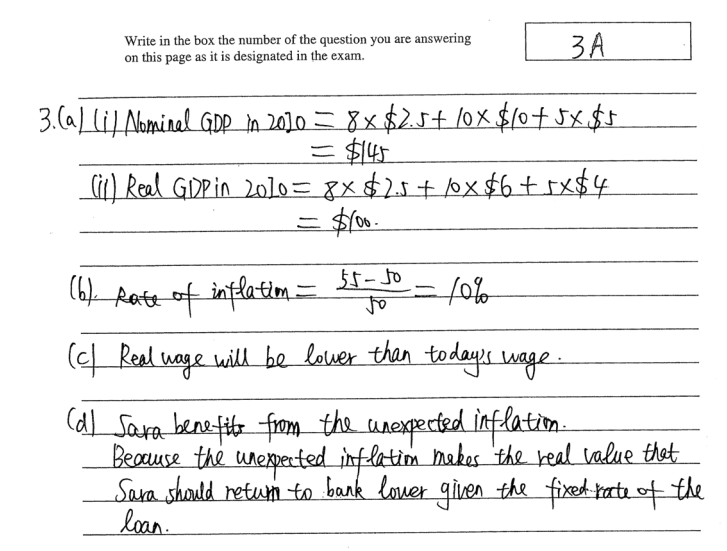 Write in the box the number of the question you are answering
on this page as it is designated in the exam.
3A
3.(a) (i) Nominal GDP in 2010 = 8 × $2.5 + 10 × $10 + 5 × $5
= $145
(ii) Real GDP in 2010 = 8 × $2.5 + 10 × $6 + 5 × $4
= $100.
(b). Rate of inflation = 55 - 50 / 50 = 10%
(c) Real wage will be lower than today's wage.
(d) Sara benefits from the unexpected inflation.
Because the unexpected inflation makes the real value that
Sara should return to bank lower given the fixed rate of the
loan.